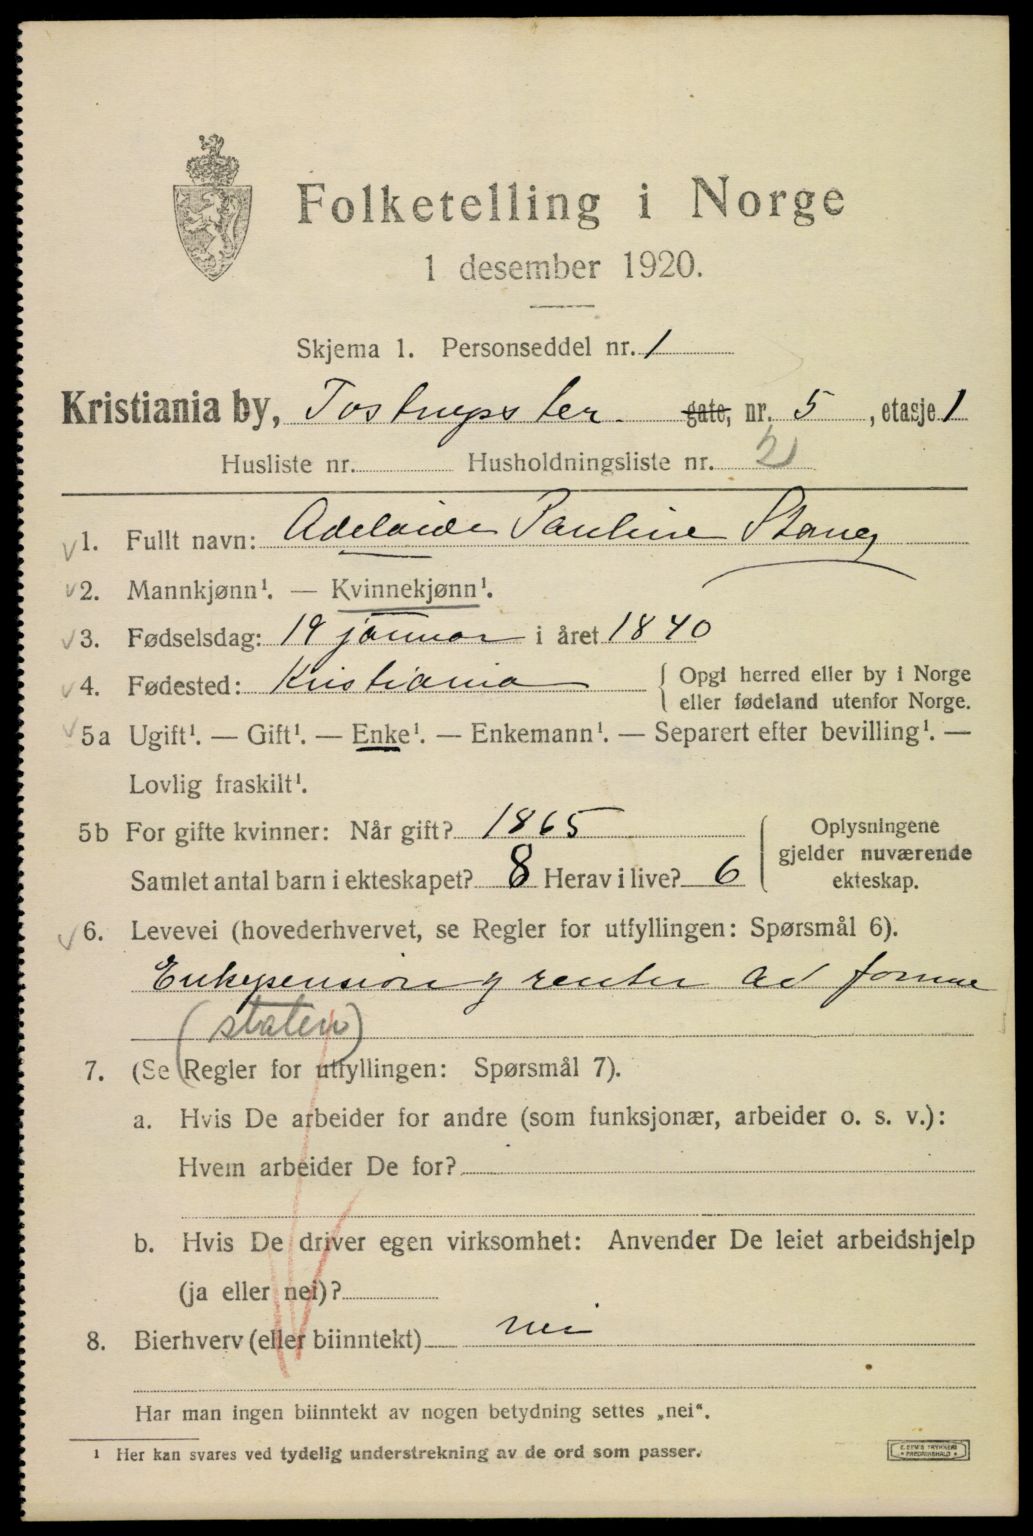 Folketelling i Norge
1 desember 1920.
Skjema 1. Personseddel nr. 1
Kristiania by, Tostrups ter. gate, nr. 5, etasje 1
Husliste nr. Husholdningsliste nr. 2
1. Fullt navn: Adelaide Pauline Stang
2. Mannkjønn¹. — Kvinnekjønn¹.
3. Fødselsdag: 19 januar i året 1840
4. Fødested: Kristiania { Opgi herred eller by i Norge
eller fødeland utenfor Norge.
5a Ugift¹. — Gift¹. — Enke¹. — Enkemann¹. — Separert efter bevilling¹. —
Lovlig fraskilt¹.
5b For gifte kvinner: Når gift? 1865
Samlet antal barn i ekteskapet? 8 Herav i live? 6
Oplysningene
gjelder nuværende
ekteskap.
6. Levevei (hovederhvervet, se Regler for utfyllingen: Spørsmål 6).
Enkepension og renter av formue
(staten)
7. (Se Regler for utfyllingen: Spørsmål 7).
a. Hvis De arbeider for andre (som funksjonær, arbeider o. s. v.):
Hvem arbeider De for?
b. Hvis De driver egen virksomhet: Anvender De leiet arbeidshjelp
(ja eller nei)?
8. Bierhverv (eller biinntekt) nei
Har man ingen biinntekt av nogen betydning settes „nei".
¹ Her kan svares ved tydelig understrekning av de ord som passer.